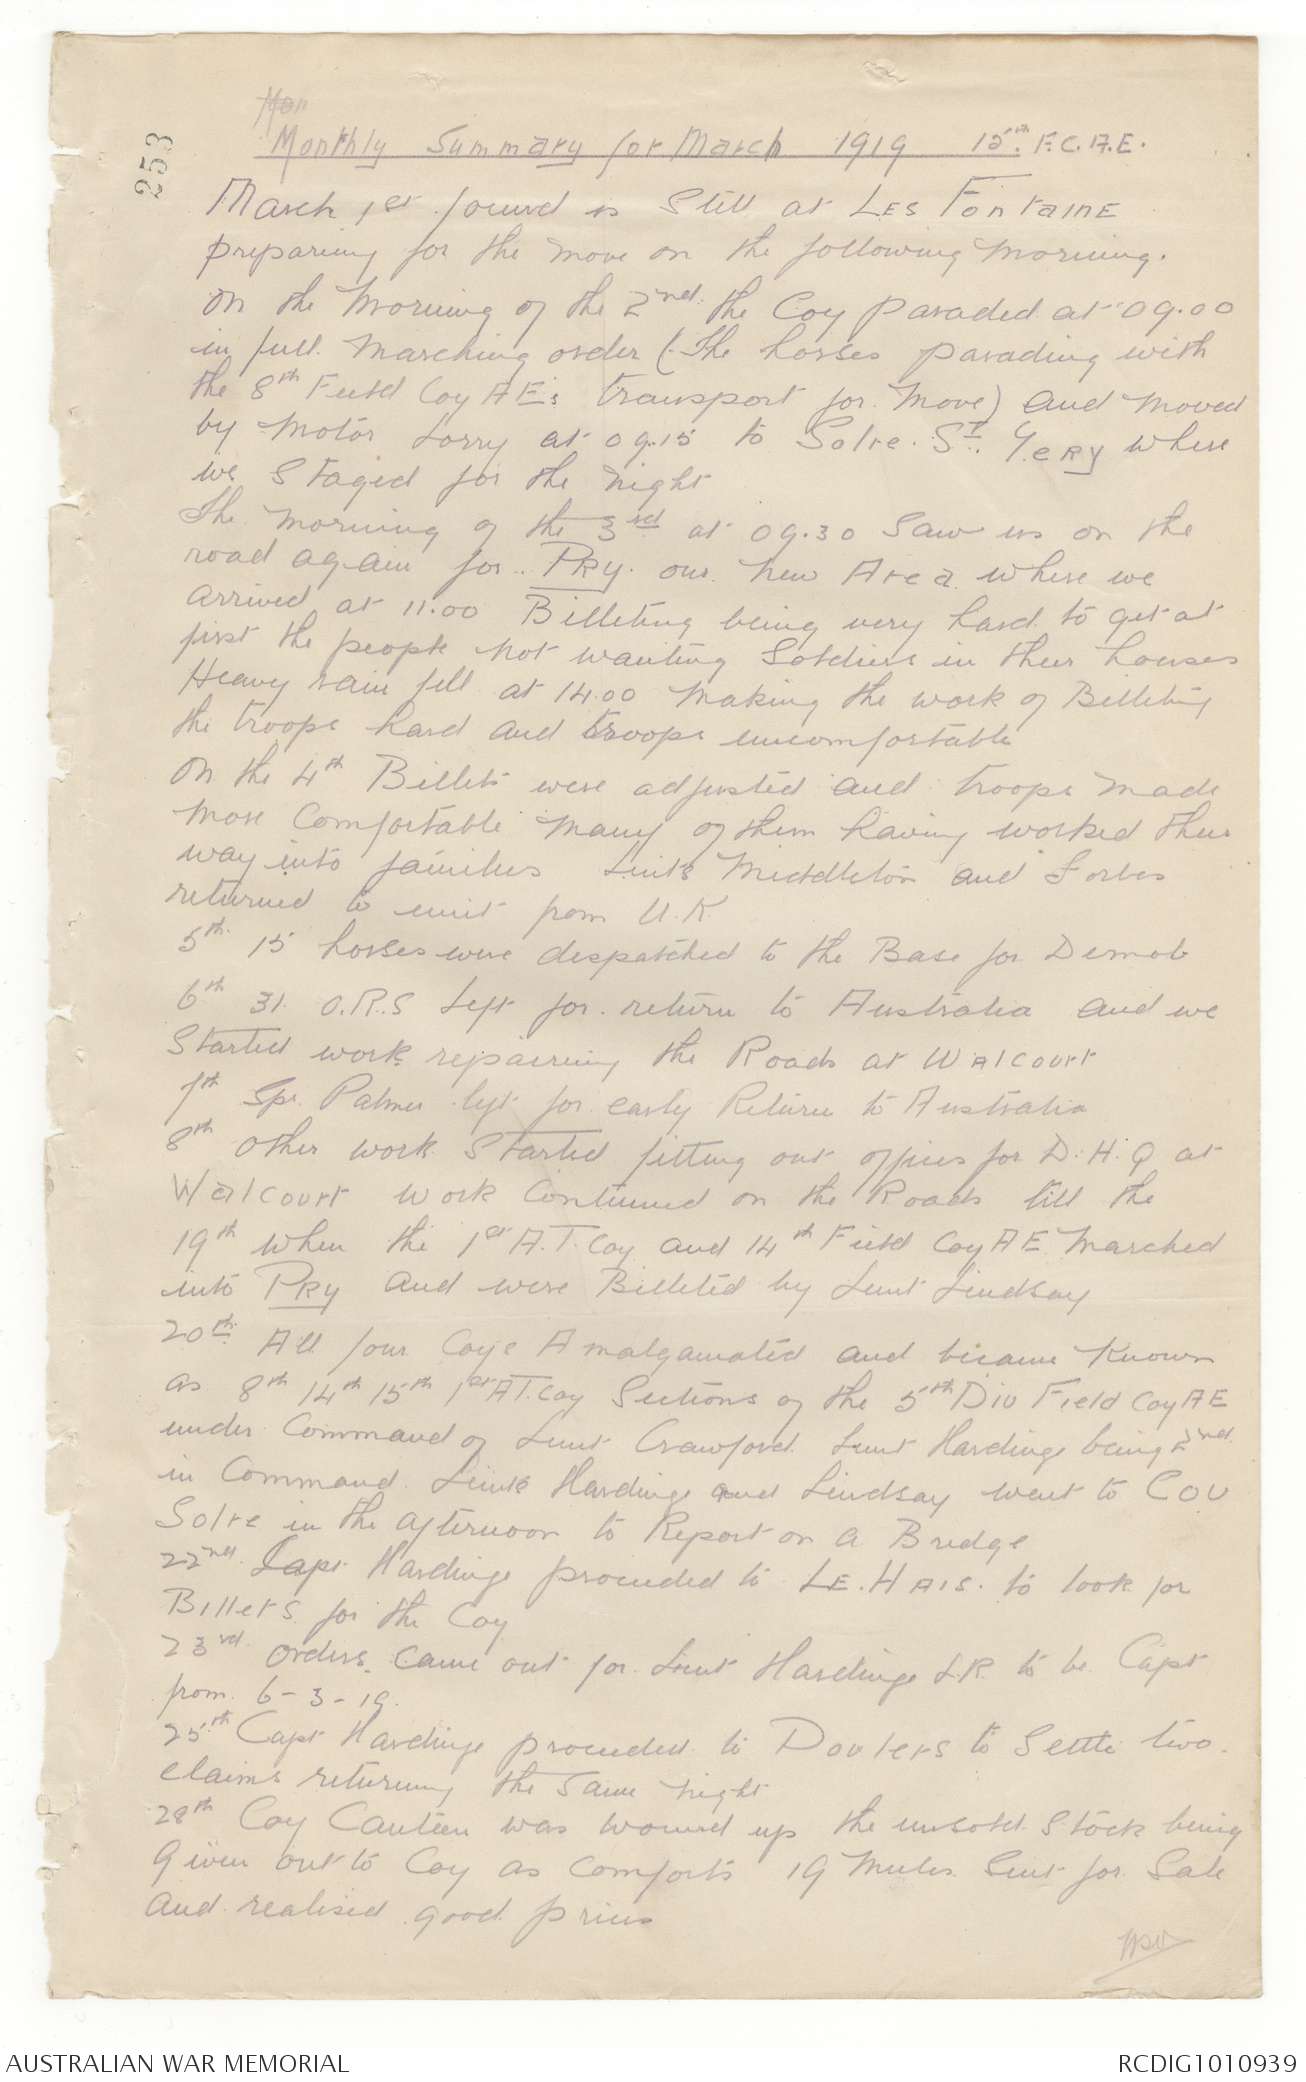 253
Mon
Monthly Summary for March 1919 15th. F.C.A.E.
March 1st found us Still at LES FontainE
preparing for the move on the following Morning.
On the Morning of the 2nd. the Coy paraded at 09.00
in full Marching order (The horses parading with
the 8th Field Coy AEs transport for Move) and moved
by Motor Lorry at 09.15 to Solre. St. GeRy where
we Staged for the night
The Morning of the 3rd at 09.30 Saw us on the
road again for PRy. our New Area where we
arrived at 11.00 Billeting being very hard to get at
first the people not wanting Soldiers in their houses
Heavy rain fell at 14.00 Making the work of Billeting
the troops hard and troops uncomfortable
On the 4th Billets were adjusted and troops made
More Comfortable Many of them having worked their
way into families Lieuts Middleton and Forbes
returned to unit from U.K.
5th. 15 horses were despatched to the Base for Demob
6th 31 O.R.S Left for return to Australia and we
Started work repairing the Roads at WAlcourt
7th Spr. Palmer left for early Return to Australia
8th Other work Started fitting out offices for D.H.Q at
Walcourt Work Continued on the Roads till the
19th when the 1st A.T. Coy and 14th Field Coy AE Marched
into PRy and were Billeted by Lieut Lindsay
20th. All four Coys Amalgamated and became Known
as 8th 14th 15th 1st AT. Coy Sections of the 5th Div Field Coy AE
under Command of Lieut Crawford Lieut Hardinge being 2nd
in Command. Lieuts Hardinge and Lindsay went to COU
Solre in the afternoon to Report on a Bridge
22nd. Capt Hardinge proceeded to LE. HAIS. to look for
Billets for the Coy
23rd. orders. came out for Lieut Hardinge L.R. to be Capt
from 6-3-19.
25th Capt Hardinge proceeded to Doulers to Settle two.
claims returning the same night
28th Coy Canteen was wound up the unsold Stock being
given out to Coy as Comforts 19 Mules Sent for Sale
and realised good prices
AUSTRALIAN WAR MEMORIAL
RCDIG1010939